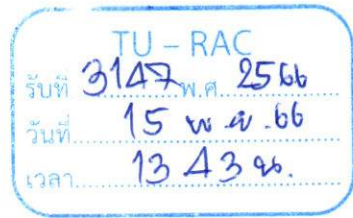 TU – RAC
รับที่ 3147 พ.ศ. 2566
วันที่ 15 พ.ย. 66
เวลา 13 43 น.